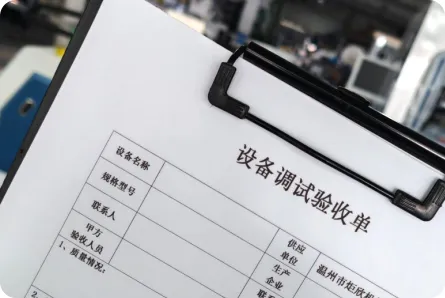 设备调试验收单
设备名称
供应
单位
温州市炬欣
规格型号
生产
企业
联系人
联系
甲方
验收人员
1、质量情况：
2、